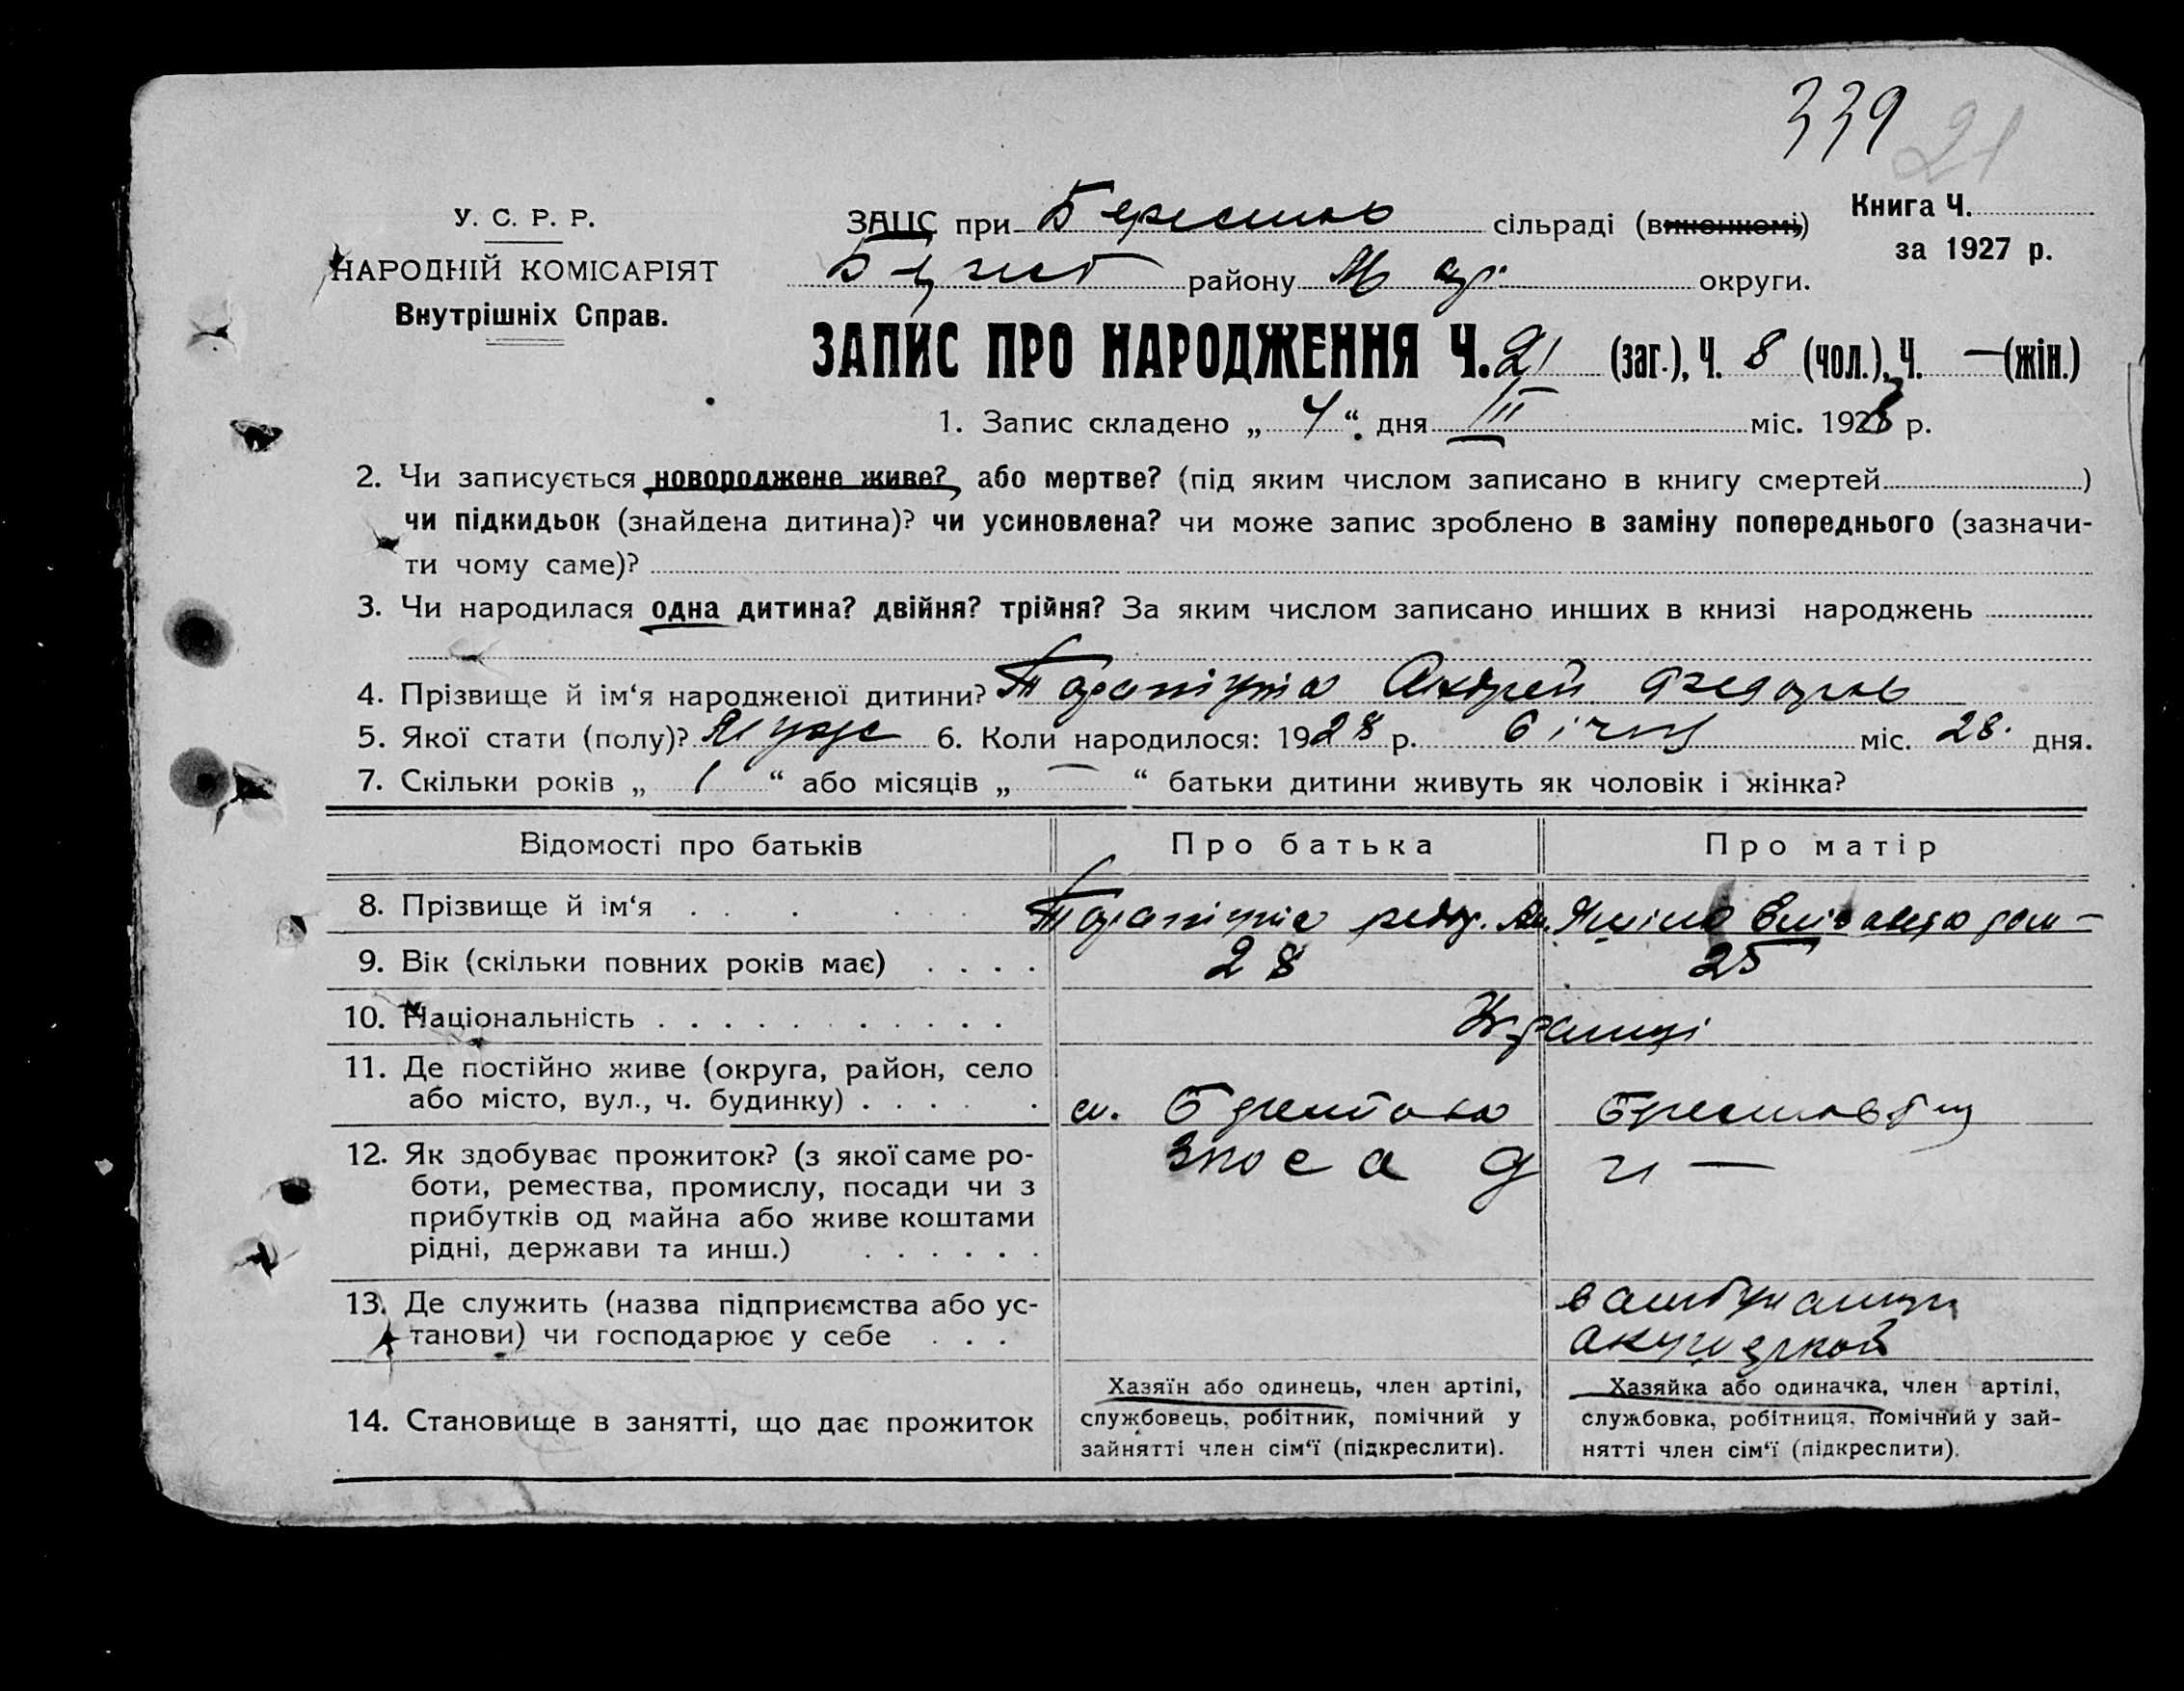 339 21
У. С. Р. Р.
НАРОДНІЙ КОМІСАРІЯТ
Внутрішніх Справ.
ЗАЦС при Берестов сільраді (виконкомі)
району М округи.
Книга Ч.
за 1927 р.
ЗАПИС ПРО НАРОДЖЕННЯ Ч. 21 (заг.), Ч. 8 (чол.), Ч. — (жін.)
1. Запис складено „ 4 “ дня III міс. 1928 р.
2. Чи записується новороджене живе? або мертве? (під яким числом записано в книгу смертей )
чи підкидьок (знайдена дитина)? чи усиновлена? чи може запис зроблено в заміну попереднього (зазначи-
ти чому саме)?
3. Чи народилася одна дитина? двійня? трійня? За яким числом записано инших в книзі народжень
4. Прізвище й ім‘я народженої дитини? Андрей Федоров
5. Якої стати (полу)? Мужс 6. Коли народилося: 1928 р. січня міс. 28. дня.
7. Скільки років „ 1 “ або місяців „ — “ батьки дитини живуть як чоловік і жінка?
Відомості про батьків Про батька Про матір
8. Прізвище й ім‘я
9. Вік (скільки повних років має) 28 25
10. Національність Українці
11. Де постійно живе (округа, район, село
або місто, вул., ч. будинку)
12. Як здобуває прожиток? (з якої саме ро-
боти, ремества, промислу, посади чи з
прибутків од майна або живе коштами
рідні, держави та инш.)
13. Де служить (назва підприємства або ус-
танови) чи господарює у себе
в амбулатории
акушеркой
14. Становище в занятті, що дає прожиток
Хазяїн або одинець, член артілі,
службовець, робітник, помічний у
зайнятті член сім‘ї (підкреслити).
Хазяйка або одиначка, член артілі,
службовка, робітниця, помічний у зай-
нятті член сім‘ї (підкреслити).